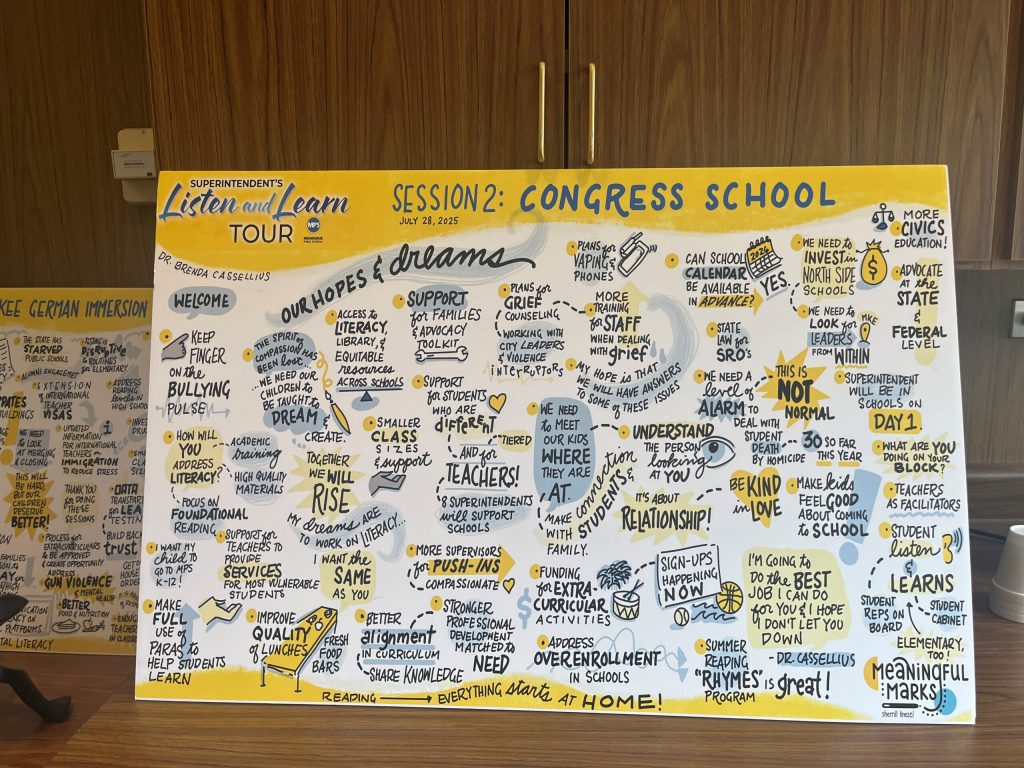 SUPERINTENDENT'S
Listen and Learn
TOUR
MPS
MILWAUKEE
PUBLIC SCHOOLS
SESSION 2: CONGRESS SCHOOL
JULY 28, 2025
DR. BRENDA CASSELLIUS
OUR HOPES & dreams
WELCOME
KEEP
FINGER
ON the
BULLYING
PULSE
THE SPIRIT of
COMPASSION HAS
BEEN lost...
...WE NEED OUR
CHILDREN TO
BE TAUGHT to
DREAM &
CREATE.
ACCESS to
LITERACY,
LIBRARY, &
EQUITABLE
resources
ACROSS SCHOOLS
SUPPORT
for FAMILIES
& ADVOCACY
TOOLKIT
PLANS for
GRIEF
COUNSELING
WORKING WITH
CITY LEADERS
& VIOLENCE
interruptors
PLANS for
VAPING &
PHONES
MORE
TRAINING
for STAFF
WHEN DEALING
WITH grief
MY HOPE is THAT
WE WILL HAVE ANSWERS
TO SOME of THESE ISSUES
CAN SCHOOL
CALENDAR
BE AVAILABLE
in ADVANCE?
2026
YES.
WE NEED to
INVEST in
NORTH SIDE
SCHOOLS
$
WE NEED to
LOOK for
LEADERS
FROM WITHIN
MKE
MORE
CIVICS
EDUCATION!
ADVOCATE
at the
STATE
&
FEDERAL
LEVEL
STATE
LAW for
SRO's
WE NEED A
level of
ALARM TO
DEAL WITH
STUDENT
DEATH
BY HOMICIDE
THIS IS
NOT
NORMAL
30 SO FAR
THIS YEAR
SUPERINTENDENT
WILL BE IN
SCHOOLS ON
DAY 1.
WHAT ARE YOU
DOING ON YOUR
BLOCK?
TEACHERS
AS FACILITATORS
HOW WILL
YOU
ADDRESS
LITERACY?
ACADEMIC
training
HIGH QUALITY
MATERIALS
FOCUS ON
FOUNDATIONAL
READING
TOGETHER
WE WILL
RISE
MY dreams ARE
TO WORK ON LITERACY...
SMALLER
CLASS
SIZES
& support
SUPPORT
for STUDENTS
WHO ARE
different
TIERED
AND for
TEACHERS!
& SUPERINTENDENTS
will SUPPORT
SCHOOLS
WE NEED
to MEET
OUR KIDS
WHERE
THEY ARE
AT.
MAKE connection
WITH STUDENTS &
FAMILY.
UNDERSTAND
THE PERSON
looking
AT YOU
IT'S ABOUT
RELATIONSHIP!
BE KIND
in LOVE
MAKE kids
FEEL GOOD
ABOUT COMING
to SCHOOL
STUDENT
listen
&
LEARNS
STUDENT
REPS ON
BOARD
STUDENT
CABINET
ELEMENTARY,
TOO!
I WANT MY
child TO
GO to MPS
K-12!
SUPPORT for
TEACHERS TO
PROVIDE
SERVICES
FOR MOST VULNERABLE
STUDENTS
WANT the
SAME
AS YOU
MORE SUPERVISORS
for PUSH-INS
COMPASSIONATE
FUNDING
for EXTRA-
CURRICULAR
ACTIVITIES
$
SIGN-UPS
HAPPENING
NOW
I'M GOING to
DO the BEST
JOB I CAN DO
for YOU & I HOPE
I DON'T LET YOU
DOWN
- DR. CASSELLIUS
MAKE
FULL
USE of
PARAS to
HELP STUDENTS
LEARN
IMPROVE
QUALITY
of LUNCHES
FRESH
FOOD
BARS
BETTER
alignment
in CURRICULUM
SHARE KNOWLEDGE
STRONGER
PROFESSIONAL
DEVELOPMENT
MATCHED to
NEED
ADDRESS
OVERENROLLMENT
in SCHOOLS
SUMMER
READING
"RHYMES" is great!
PROGRAM
READING → EVERYTHING starts AT HOME!
meaningful
MARKS
sherrill knezel
KEE GERMAN IMMERSION
THE STATE HAS
STARVED
PUBLIC SCHOOLS
TESTING is
DISRUPTIVE
to ROUTINES
in ELEMENTARY
ALUMNI ENGAGEMENT
EXTENSION
of INTERNATIONAL
TEACHER
VISAS
ADDRESS
READING
levels in
HIGH SCHOOL
WE NEED
to LOOK
AT MERGING
& CLOSING
UPDATED
INFORMATION
FOR INTERNATIONAL
TEACHERS
on
IMMIGRATION
TO REDUCE STRESS
THIS WILL
BE HARD
BUT OUR
CHILDREN
DESERVE
BETTER!
THANK YOU
for DOING
THESE
SESSIONS
DATA
BUILD BACK
trust
PROCESS for
EXTRACURRICULARS
to BE APPROVED
& CREATE OPPORTUNITY
ADDRESS
GUN VIOLENCE
& MENTAL
BETTER
FOOD & NUTRITION
TAL LITERACY